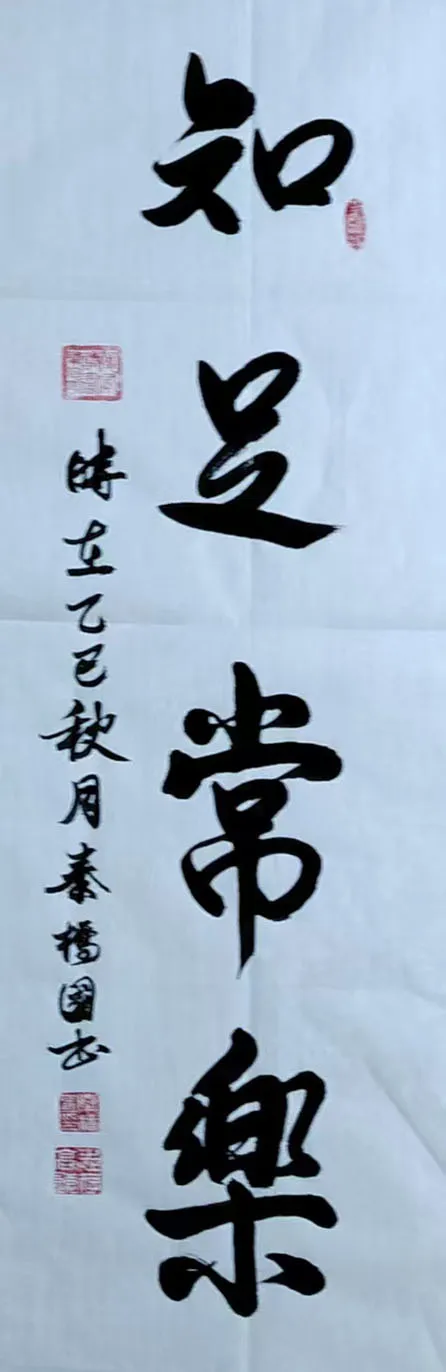 知足常樂
時在乙巳秋月秦橋國书